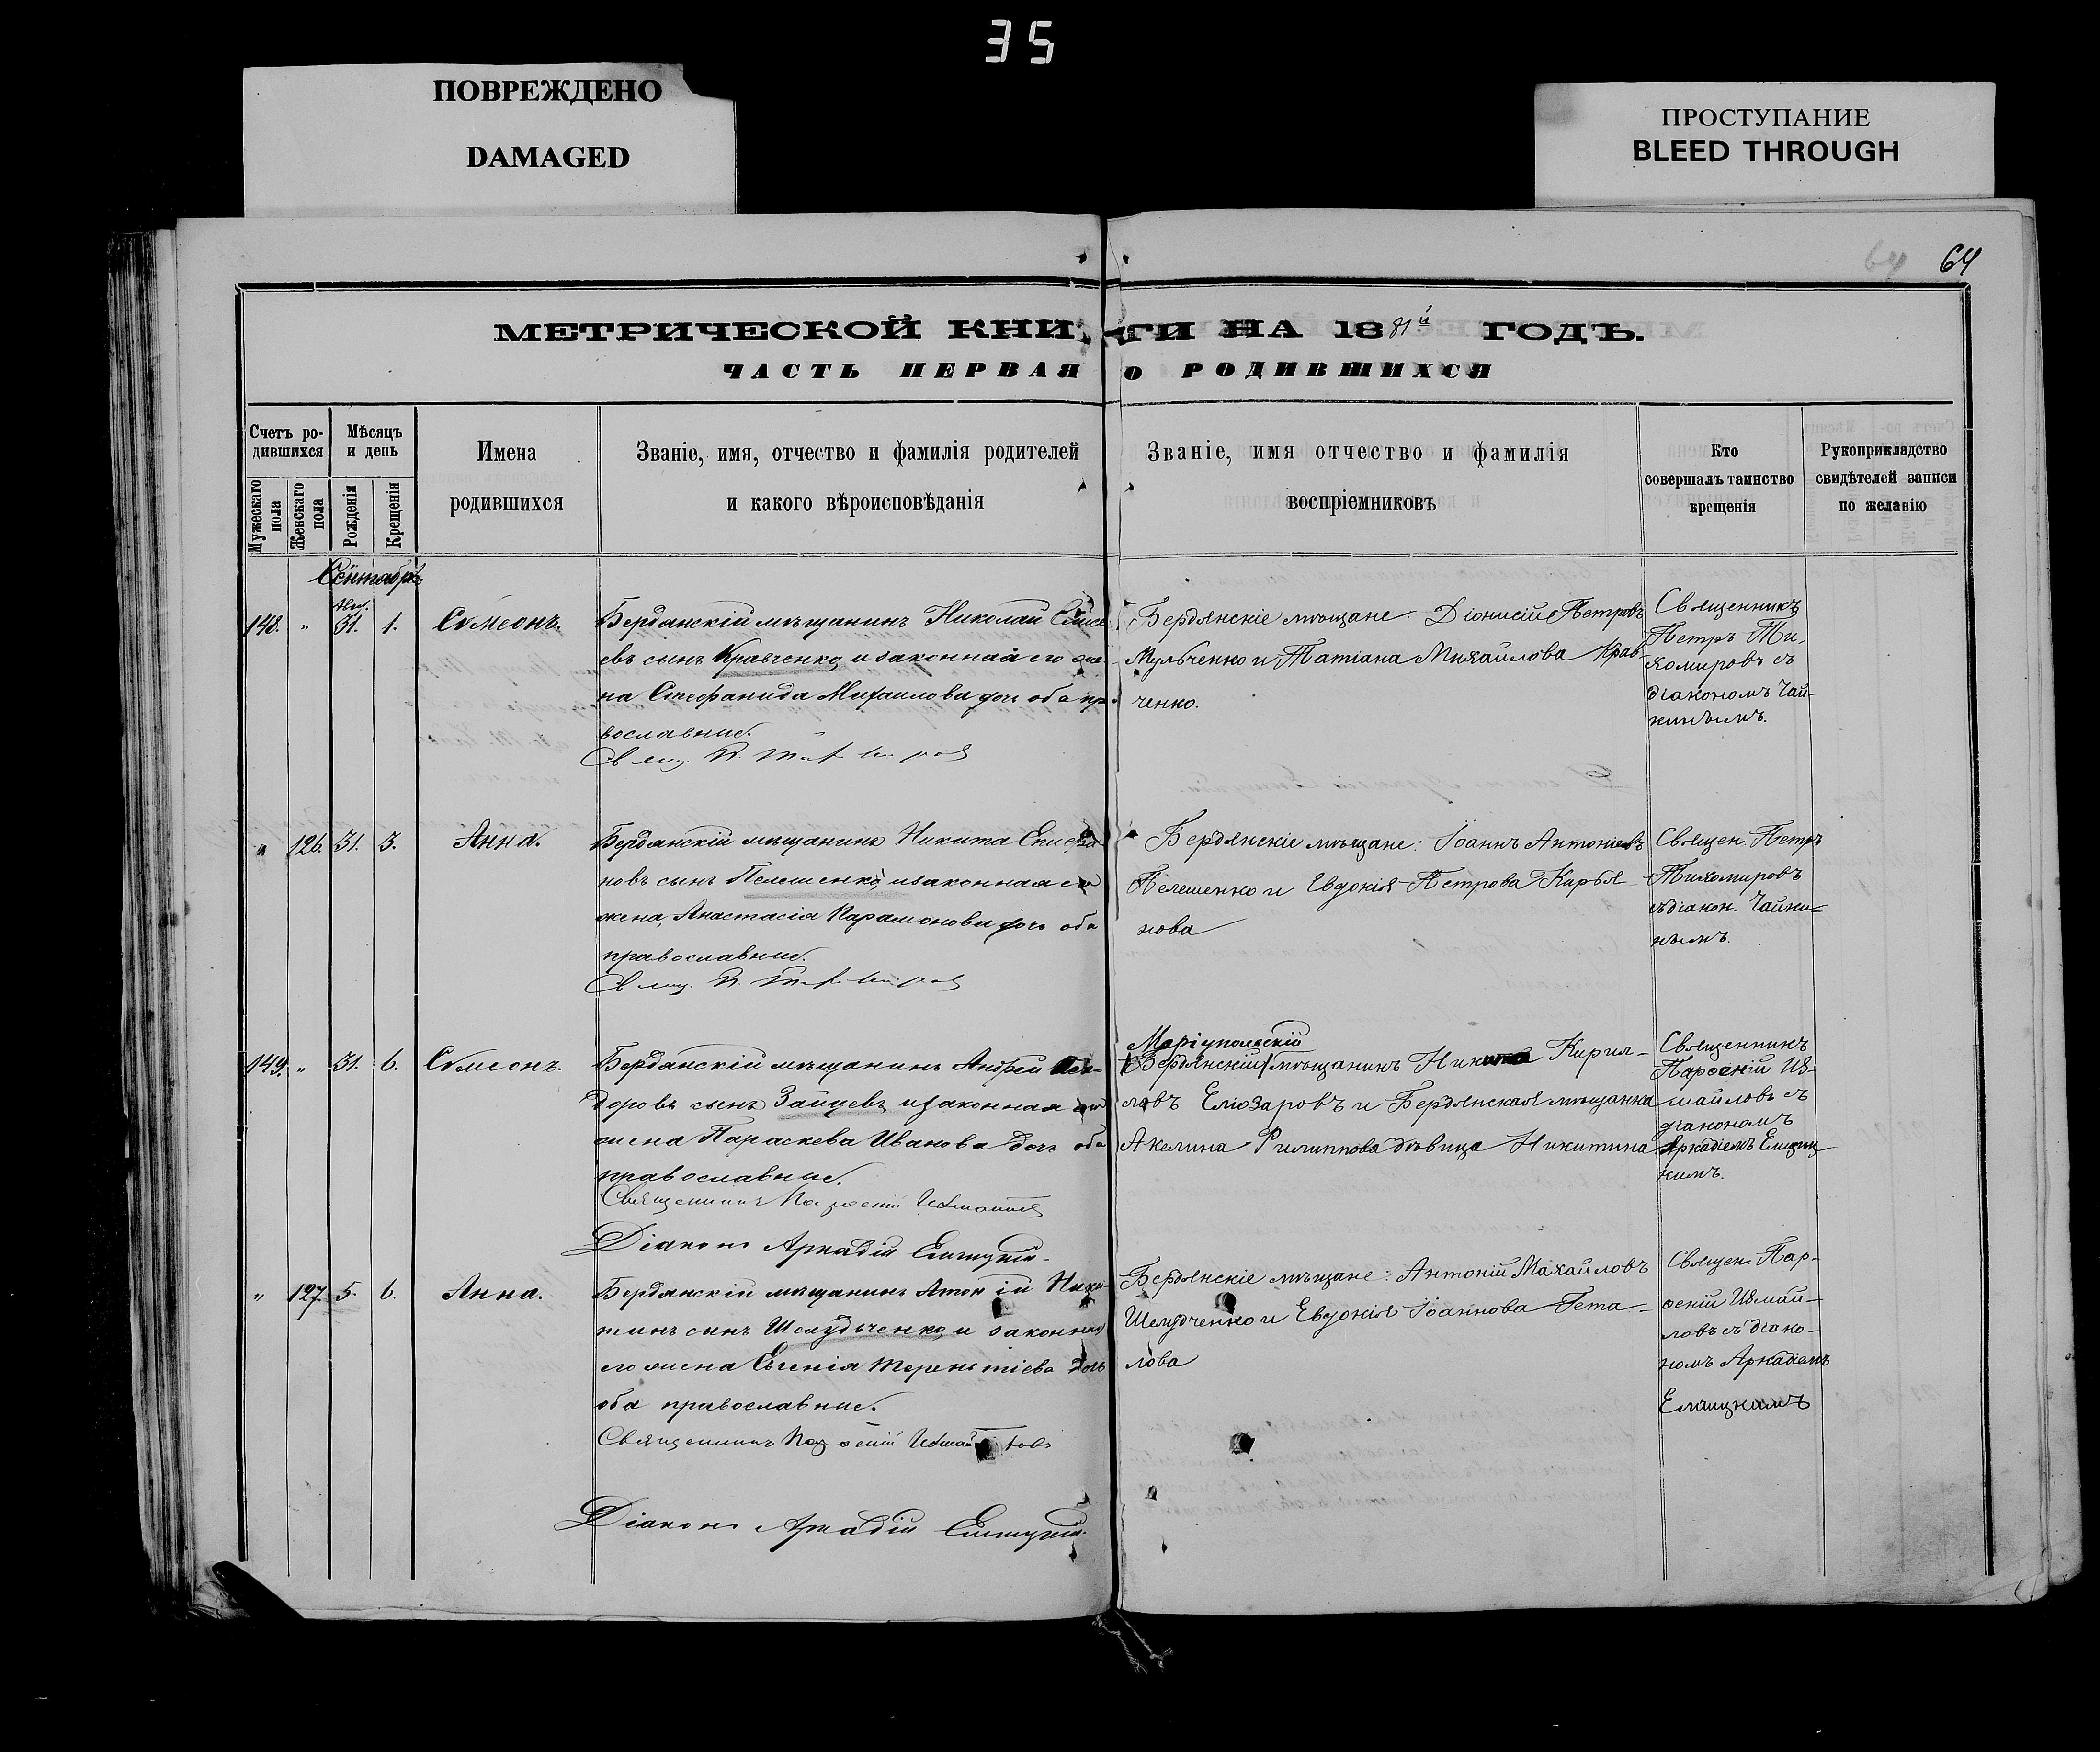 35
ПОВРЕЖДЕНО
DAMAGED
ПРОСТУПАНИЕ
BLEED THROUGH
64 64
МЕТРИЧЕСКОЙ КНИГИ НА 1881й ГОДЪ.
ЧАСТЬ ПЕРВАЯ О РОДИВШИХСЯ
Счетъ ро-
дившихся
Мужескаго пола
Женскаго пола
Мѣсяцъ
и день
Рожденія
Крещенія
Имена
родившихся
Званіе, имя, отчество и фамилія родителей
и какого вѣроисповѣданія
Званіе, имя отчество и фамилія
воспріемниковъ
Кто
совершалъ таинство
крещенія
Рукоприкладство
свидѣтелей записи
по желанію
Сентябрь
Авг.
148. " 31. 1. Сѵмеонъ.
Бердянскій мѣщанинъ Николай
евъ сынъ Кравченко, и законная его же-
на Стефанида Михаилова дочь оба пра
вославные.
Свящ. П. Тихомировъ
Бердянскіе мѣщане: Діонисій Петровъ
Мульченко и Татіана Михаилова Крав-
ченко.
Священникъ
Петръ Ти-
хомировъ съ
діакономъ Чай-
кинымъ.
" 126. 31. 3. Анна.
Бердянскій мѣщанинъ Никита
новъ сынъ Пелешенко, и законная его
жена, Анастасія Парамонова дочь оба
православные.
Свящ. П. Тихомировъ
Бердянскіе мѣщане: Іоаннъ Антоніевъ
Пелешенко и Евдокія Петрова Карбя
нова
Священ. Петръ
Тихомировъ
съ діакон. Чайки-
нымъ.
149. " 31. 6. Сѵмеонъ.
Бердянскій мѣщанинъ Андрей
доровъ сынъ Зайцевъ, и законная его
жена Параскева Иванова дочь оба
православные.
Священникъ Парѳеній Измаиловъ
Діаконъ Аркадій Елшуцкій.
Маріупольскій
(Бердянскій) мѣщанинъ Никита Кирил-
ловъ Еліозаровъ и Бердянская мѣщанка
Акелина Филиппова дѣвица Никитина
Священникъ
Парѳеній Из-
майловъ съ
діакономъ
Аркадіемъ
кимъ.
" 127. 5. 6. Анна.
Бердянскій мѣщанинъ Антоній Ники-
тинъ сынъ Шелудьченко, и законная
его жена Евгенія Терентіева дочь
оба православные.
Священникъ Парѳеній Измайловъ
Діаконъ Аркадій
Бердянскіе мѣщане: Антоній Михайловъ
Шелудченко и Евдокія Іоаннова Гета-
лова
Священ. Пар-
ѳеній Измай-
ловъ съ діако-
номъ Аркадіемъ